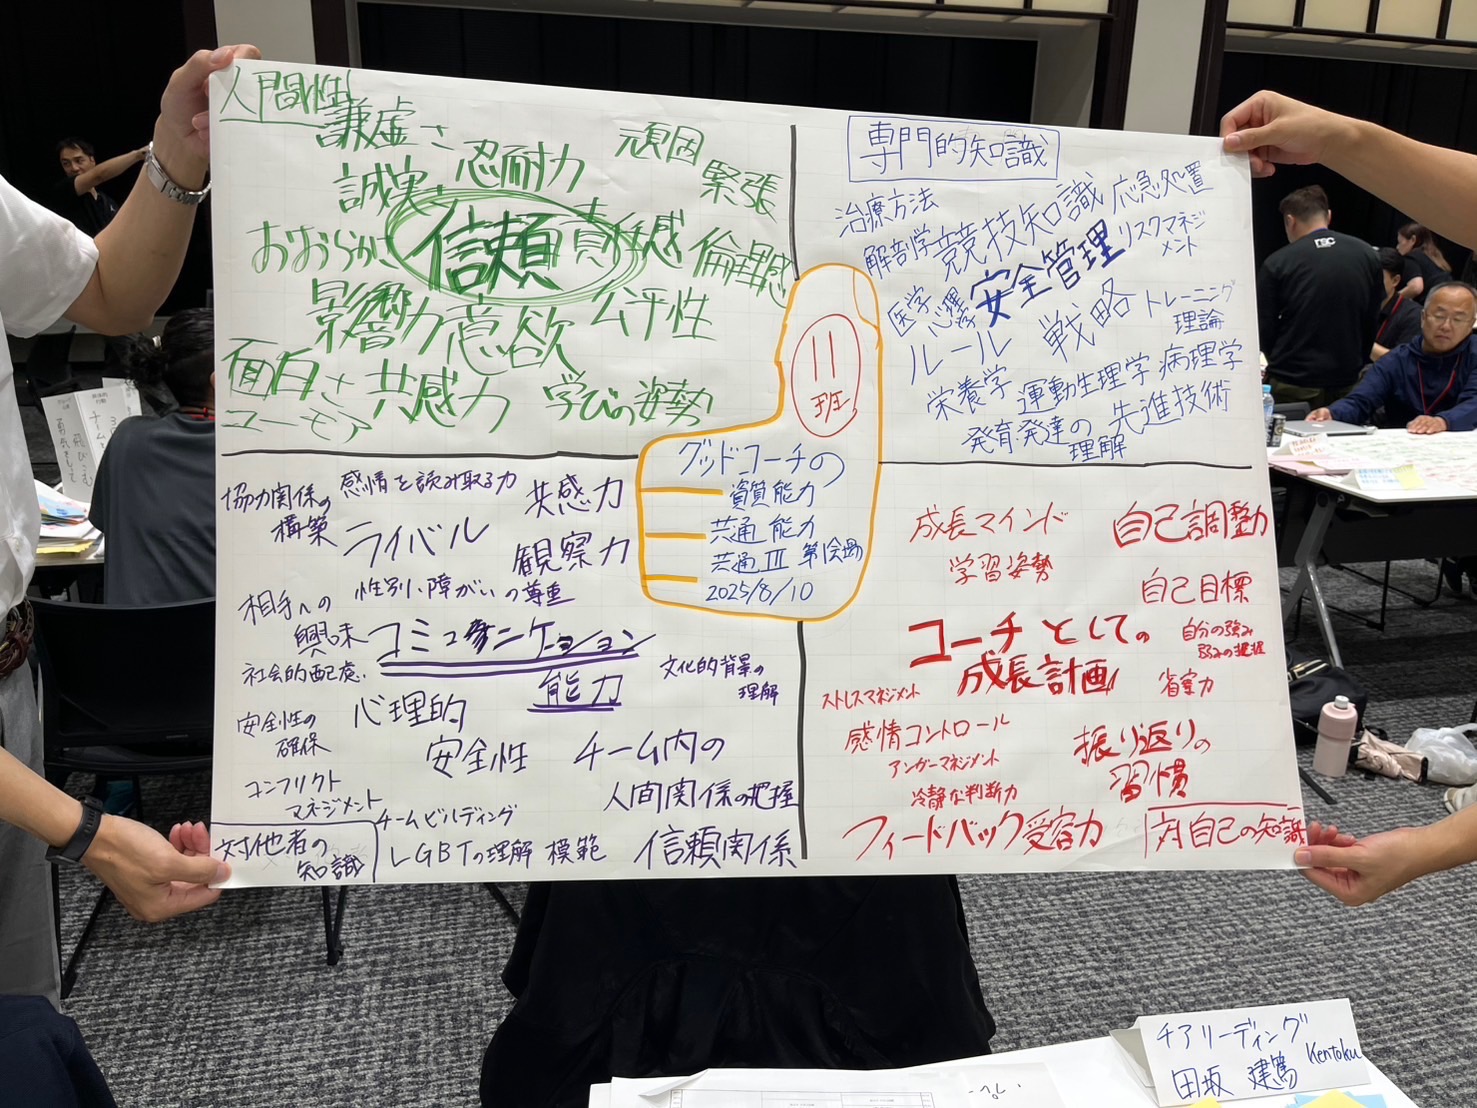 人間性
謙虚さ
忍耐力
頑固
緊張
誠実
信頼
責任感
倫理感
おおらかさ
影響力
意欲
公平性
面白さ
ユーモア
共感力
学びの姿勢
専門的知識
治療方法
解剖学
競技知識
応急処置
医学
心理学
安全管理
リスクマネジ
メント
ルール
戦略
トレーニング
理論
栄養学
運動生理学
病理学
発育発達の
理解
先進技術
11
班
グッドコーチの
資質能力
共通能力
共通Ⅲ 第1会場
2025/8/10
協力関係の
構築
感情を読み取る力
共感力
ライバル
観察力
相手への
興味
性別、障がいの尊重
コミュニケーション
能力
社会的配慮
文化的背景の
理解
安全性の
確保
心理的
安全性
チーム内の
人間関係の把握
コンフリクト
マネジメント
チームビルディング
LGBTの理解
模範
信頼関係
対他者の
知識
成長マインド
自己調整力
学習姿勢
自己目標
コーチとしての
成長計画
自分の強み
弱みの把握
ストレスマネジメント
省察力
感情コントロール
アンガーマネジメント
振り返りの
習慣
冷静な判断力
フィードバック受容力
対自己の知識
チアリーディング
田坂 建篤 Kentoku